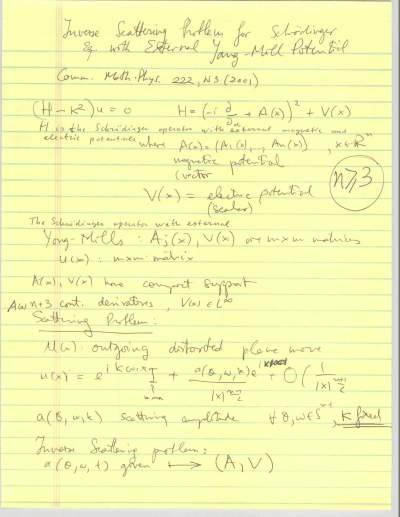 Inverse Scattering Problem for Schrödinger
Eq. with External Yang-Mill Potential
Comm. Math. Phys. 222, N3 (2001)
(H - k²)u = 0 H = (-i ∂/∂x + A(x))² + V(x)
H is the Schrödinger operator with external magnetic and
electric potentials where A(x) = (A₁(x), ..., Aₙ(x)), x ∈ ℝⁿ
magnetic potential
(vector
n ≥ 3
V(x) = electric potential
(scalar)
The Schrödinger operator with external
Yang-Mills : Aj(x), V(x) are m×m matrices
u(x) : m×m matrix
A(x), V(x) have compact support
A(x) n+3 cont. derivatives, V(x) ∈ L^∞
Scattering Problem:
u(x): outgoing distorted plane wave
u(x) = e^{ikω·x} I + a(θ,ω,k)e^{ik|x|} / |x|^{(n-1)/2} + O(1/|x|^{(n+1)/2}
m×m
a(θ,ω,k) scattering amplitude ∀ θ,ω ∈ S^{n-1}, k fixed
Inverse Scattering problem:
a(θ,ω,k) given ⟼ (A,V)